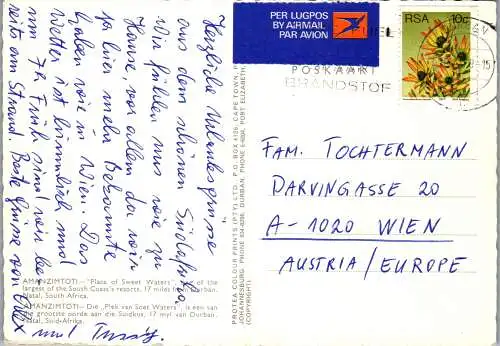 Herzliche Urlaubsgrüsse
aus dem schönen Südafrika,
wir fühlen uns wie zu
Hause, vor allem da wir
ja hier mehr Bekannte
haben wie in Wien. Das
Wetter ist himmlisch und
um 7h Früh sind wir be-
reits am Strand Beste Grüsse von
und
PER LUGPOS
BY AIRMAIL
PAR AVION
RSA 10c
POSKAART
BRANDSTOF
FAM. TOCHTERMANN
DARVINGASSE 20
A-1020 WIEN
AUSTRIA/EUROPE
PROTEA COLOUR PRINTS (PTY) LTD. P.O. BOX 4126, CAPE TOWN,
JOHANNESBURG. PHONE 834-6296, DURBAN. PHONE PORT ELIZABETH
(COPYRIGHT)
AMANZIMTOTI — "Place of Sweet Waters", is one of the
largest of the South Coast's resorts, 17 miles from Durban.
Natal, South Africa.
AMANZIMTOTI — Die „Plek van Soet Waters", is een van
die grootste oorde aan die Suidkus, 17 myl van Durban.
Natal, Suid-Afrika.